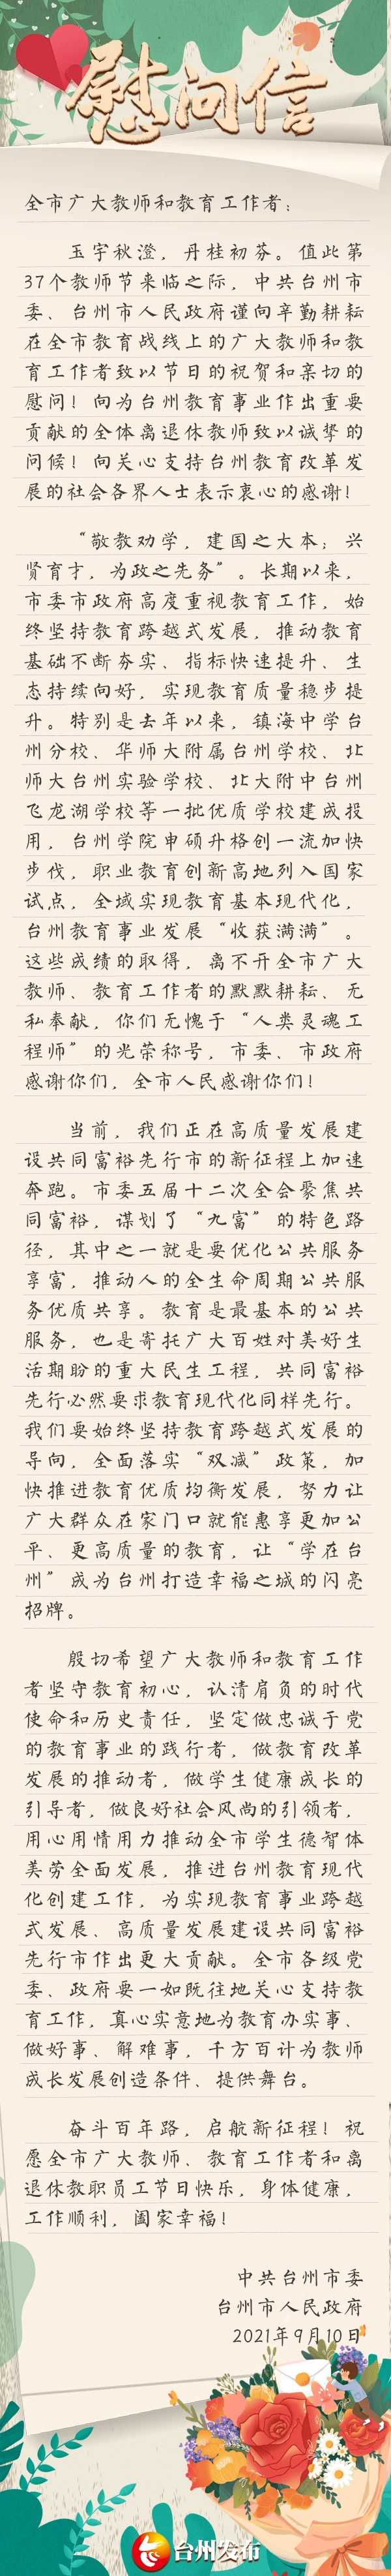 慰问信
全市广大教师和教育工作者：
玉宇秋澄，丹桂初芬。值此第
37个教师节来临之际，中共台州市
委、台州市人民政府谨向辛勤耕耘
在全市教育战线上的广大教师和教
育工作者致以节日的祝贺和亲切的
慰问！向为台州教育事业作出重要
贡献的全体离退休教师致以诚挚的
问候！向关心支持台州教育改革发
展的社会各界人士表示衷心的感谢！
“敬教劝学，建国之大本；兴
贤育才，为政之先务”。长期以来，
市委市政府高度重视教育工作，始
终坚持教育跨越式发展，推动教育
基础不断夯实、指标快速提升、生
态持续向好，实现教育质量稳步提
升。特别是去年以来，镇海中学台
州分校、华师大附属台州学校、北
师大台州实验学校、北大附中台州
飞龙湖学校等一批优质学校建成投
用，台州学院申硕升格创一流加快
步伐，职业教育创新高地列入国家
试点，全域实现教育基本现代化，
台州教育事业发展“收获满满”。
这些成绩的取得，离不开全市广大
教师、教育工作者的默默耕耘、无
私奉献，你们无愧于“人类灵魂工
程师”的光荣称号，市委、市政府
感谢你们，全市人民感谢你们！
当前，我们正在高质量发展建
设共同富裕先行市的新征程上加速
奔跑。市委五届十二次全会聚焦共
同富裕，谋划了“九富”的特色路
径，其中之一就是要优化公共服务
享富，推动人的全生命周期公共服
务优质共享。教育是最基本的公共
服务，也是寄托广大百姓对美好生
活期盼的重大民生工程，共同富裕
先行必然要求教育现代化同样先行。
我们要始终坚持教育跨越式发展的
导向，全面落实“双减”政策，加
快推进教育优质均衡发展，努力让
广大群众在家门口就能惠享更加公
平、更高质量的教育，让“学在台
州”成为台州打造幸福之城的闪亮
招牌。
殷切希望广大教师和教育工作
者坚守教育初心，认清肩负的时代
使命和历史责任，坚定做忠诚于党
的教育事业的践行者，做教育改革
发展的推动者，做学生健康成长的
引导者，做良好社会风尚的引领者，
用心用情用力推动全市学生德智体
美劳全面发展，推进台州教育现代
化创建工作，为实现教育事业跨越
式发展、高质量发展建设共同富裕
先行市作出更大贡献。全市各级党
委、政府要一如既往地关心支持教
育工作，真心实意地为教育办实事、
做好事、解难事，千方百计为教师
成长发展创造条件、提供舞台。
奋斗百年路，启航新征程！祝
愿全市广大教师、教育工作者和离
退休教职员工节日快乐，身体健康，
工作顺利，阖家幸福！
中共台州市委
台州市人民政府
2021年9月10日
台州发布